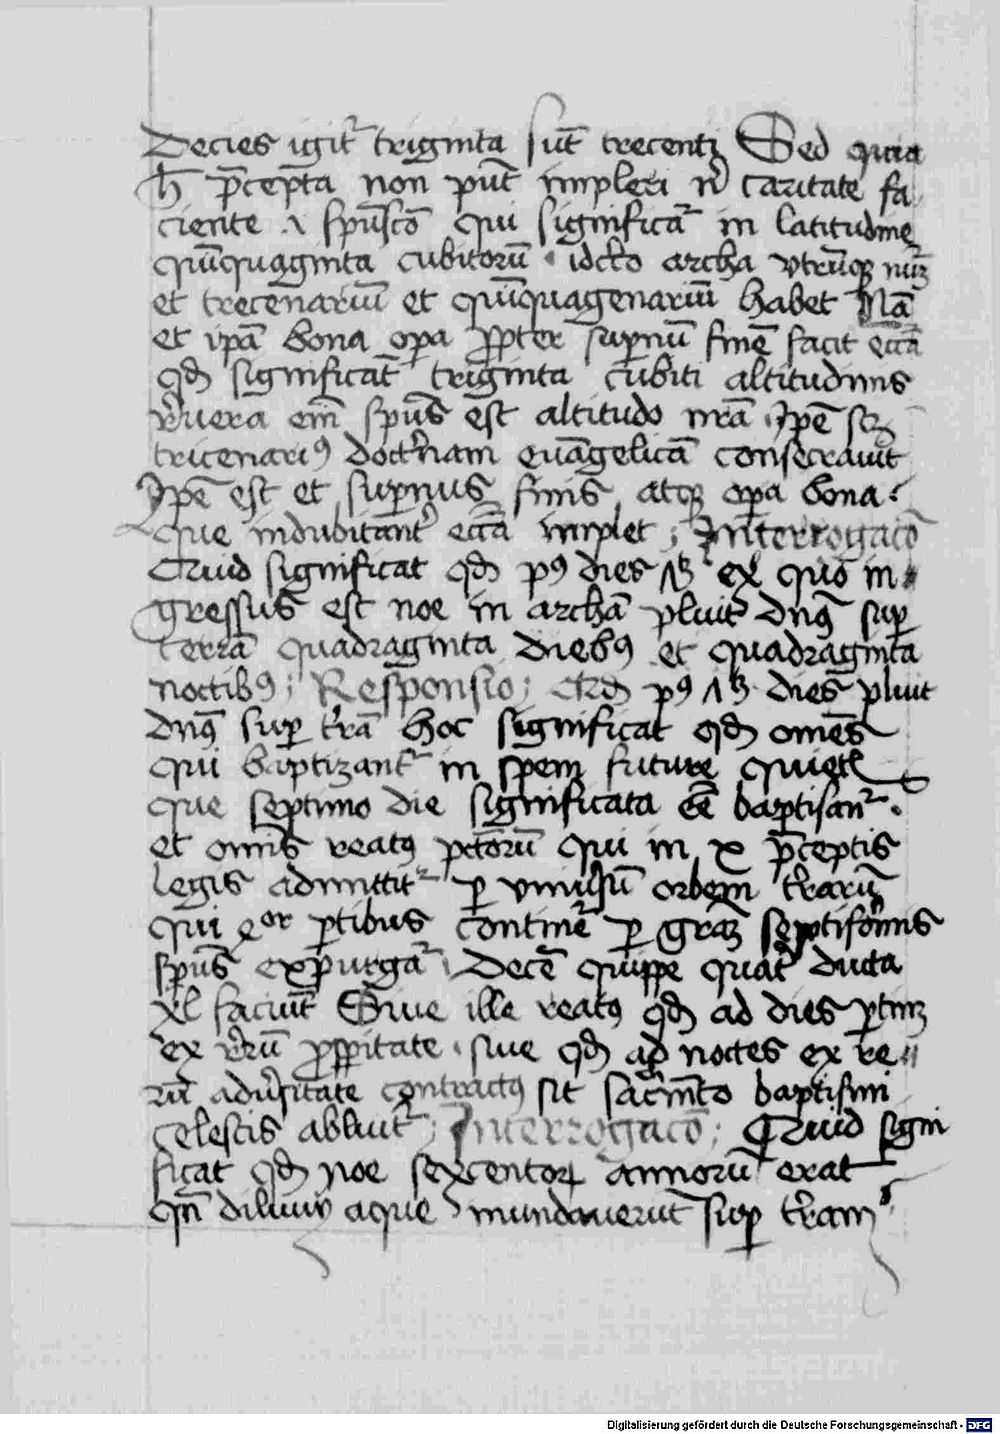 Decies igit᷑ triginta sūt trecenti Sed quia
h̄ p̄cepta non pn̄t impleri n̄ caritate fa
ciente ⁊ spūscō qui significat᷑ in latitudine
quīquaginta cubitorū · idcō archa vtrūqꝫ nūꝫ
et trecenariū et quīquagenariū habet Nā
et ip̄a bona oꝑa ꝓpter suꝑnū finē facit ecc̄a
qđ significāt triginta cubiti altitudinis
v̓e vera em̄ spūs est altitudo nr̄a Ip̄e scꝫ
tricenariꝰ doct̓nam euāgelicā consecrauit
Ip̄e est et suꝑnus finis atqꝫ oꝑa bona
que indubitant᷑ ecc̄a implet ; Interrogacō
Quid significat qđ pꝰ dies ꝟ ex quo in
gressus est noe in archā pluit dn̄s suꝑ
terrā quadraginta diebꝰ et quadraginta
noctibꝰ ; Responsio ; Qđ pꝰ dies pluit
dn̄s suꝑ t̓rā hoc significat qđ om̄es
qui baptizant᷑ in spem future quietꝭ
que septimo die significata ē baptisant᷑ ·
et om̄is reatꝰ pctōrū qui in x p̄ceptis
legis admittit᷑ ꝑ vniu̓sū orbem t̓rarū
qui 4or ꝑtibus continet᷑ ꝑ gr̄aꝫ septiformis
spūs expurgat᷑ Decē quippe quat᷑ ducta
xl faciūt Siue ille reatꝰ qđ ad dies ꝑtinꝫ
ex re̓rū ꝓsꝑitate · siue qđ ad noctes ex re
rū adu̓sitate contractꝰ sit sac̓mēto baptismi
celestis abluit᷑ ; Interrogacō ; Quid signi
ficat qđ noe sexcentoꝝ annorū erat
qn̄ diluuij aque inundauerūt suꝑ t̓ram
Digitalisierung gefördert durch die Deutsche Forschungsgemeinschaft - DFG